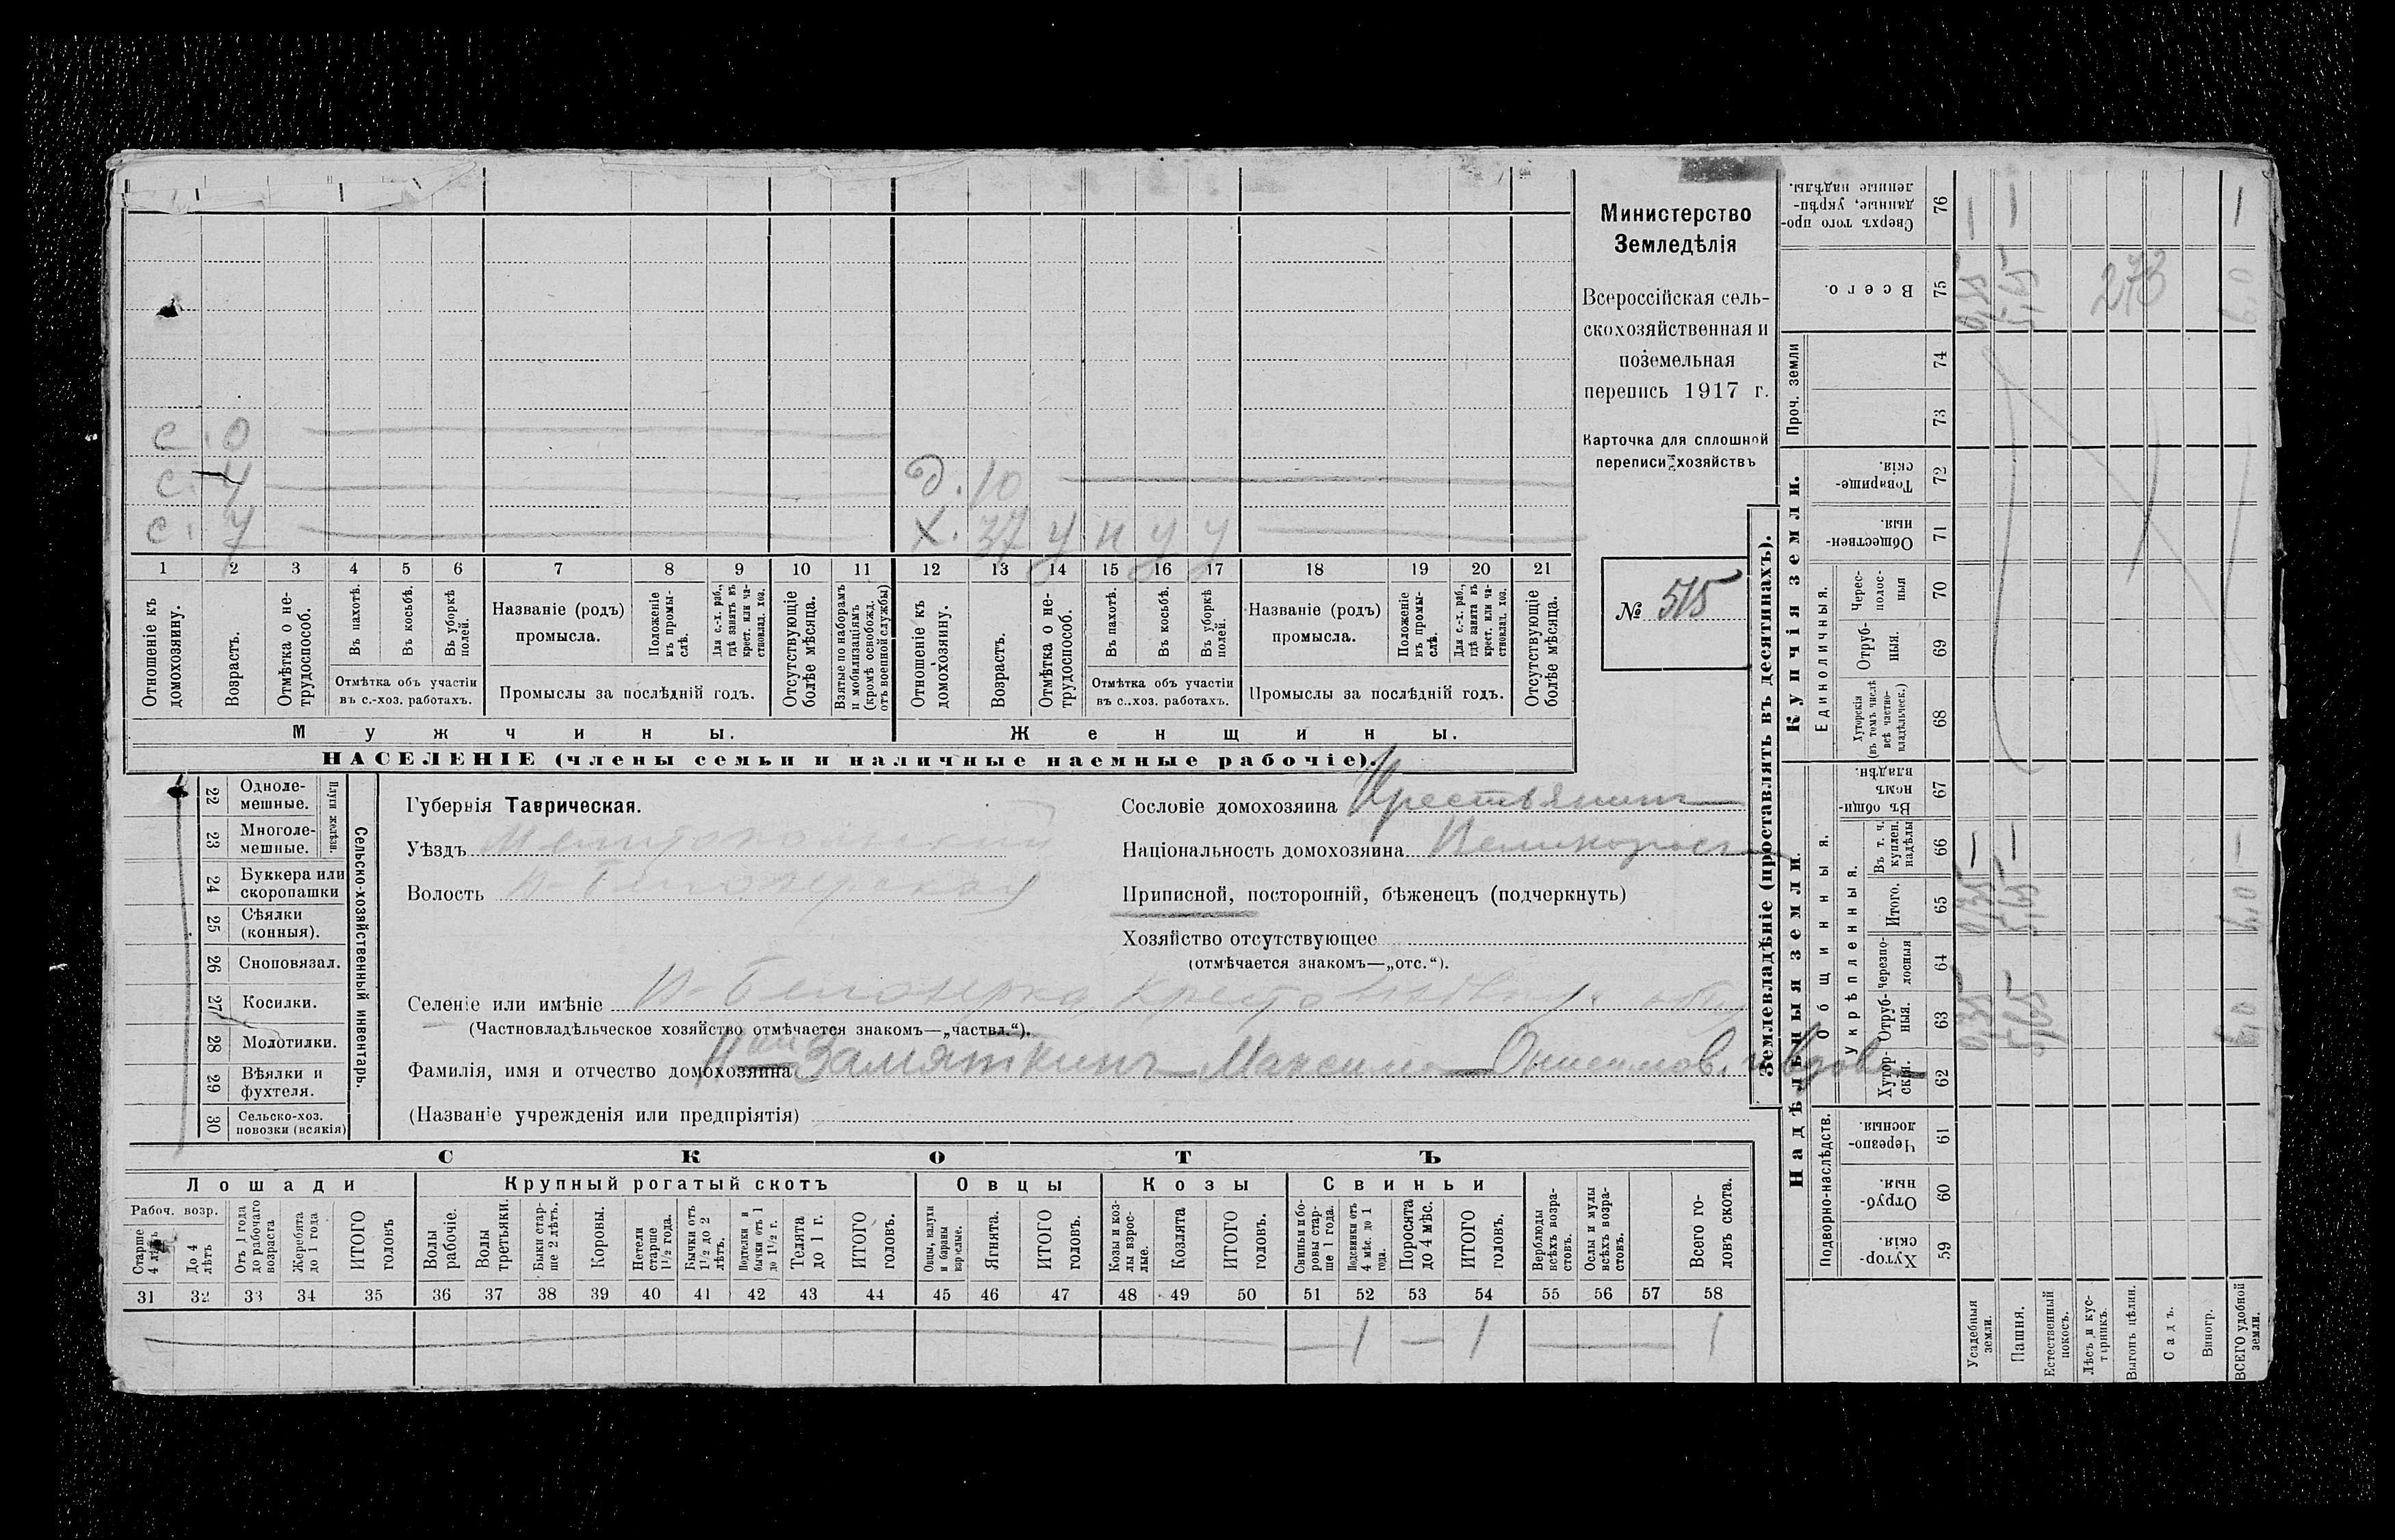 Министерство
Земледѣлія
Всероссійская сель-
скохозяйственная и
поземельная
перепись 1917 г.
Карточка для сплошной
переписи хозяйствъ
№ 515
с. 0
с. 4
с. 7
д. 10
х. 37 у н у у
1 2 3 4 5 6 7 8 9 10 11 12 13 14 15 16 17 18 19 20 21
Отношеніе къ домохозяину.
Возрастъ.
Отмѣтка о не-трудоспособ.
Въ пахотѣ.
Въ косьбѣ.
Въ уборкѣ полей.
Отмѣтка объ участіи
въ с.-хоз. работахъ.
Названіе (родъ)
промысла.
Положеніе въ промы-слѣ.
Для с.-х. раб., гдѣ занятъ въ крест. или ча-стновлад. хоз.
Промыслы за послѣдній годъ.
Отсутствующіе болѣе мѣсяца.
Взятые по наборамъ и мобилизаціямъ (кромѣ освобожд. отъ военной службы)
Отношеніе къ домохозяину.
Возрастъ.
Отмѣтка о не-трудоспособ.
Въ пахотѣ.
Въ косьбѣ.
Въ уборкѣ полей.
Отмѣтка объ участіи
въ с..хоз. работахъ.
Названіе (родъ)
промысла.
Положеніе въ промы-слѣ.
Для с.-х. раб., гдѣ занята въ крест. или ча-стновлад. хоз.
Промыслы за послѣдній годъ.
Отсутствующіе болѣе мѣсяца.
Мужчины.
Женщины.
НАСЕЛЕНІЕ (члены семьи и наличные наемные рабочіе).
22 Одноле-мешные.
23 Многоле-мешные.
Плуги желѣзн.
24 Буккера или скоропашки
25 Сѣялки (конныя).
26 Сноповязал.
27 Косилки.
28 Молотилки.
29 Вѣялки и фухтеля.
30 Сельско-хоз. повозки (всякія)
Сельско-хозяйственный инвентарь.
Губернія Таврическая.
Уѣздъ Мелитопольскій
Волость Н-Бѣлозерская
Сословіе домохозяина Крестьянинъ
Національность домохозяина Великороссъ
Приписной, посторонній, бѣженецъ (подчеркнуть)
Хозяйство отсутствующее
(отмѣчается знакомъ—„отс.“).
Селеніе или имѣніе Н-Бѣлозерка
(Частновладѣльческое хозяйство отмѣчается знакомъ—„частвл.“).
Фамилія, имя и отчество домохозяина Замяткинъ Максимъ Онисимов. вдова
(Названіе учрежденія или предпріятія)
СКОТЪ
Лошади
Крупный рогатый скотъ
Овцы
Козы
Свиньи
Рабоч. возр.
Старше 4 лѣтъ
До 4 лѣтъ
Отъ 1 года до рабочаго возраста
Жеребята до 1 года
ИТОГО головъ
Волы рабочіе.
Волы третьяки.
Быки стар-ше 2 лѣтъ.
Коровы.
Нетели старше 1½ года.
Бычки отъ 1½ до 2 лѣтъ.
Подтелки и бычки отъ 1 до 1½ г.
Телята до 1 г.
ИТОГО головъ.
Овцы, валухи и бараны взрослые.
Ягнята.
ИТОГО головъ.
Козы и коз-лы взрос-лые.
Козлята
ИТОГО головъ.
Свиньи и бо-ровы стар-ше 1 года.
Подсвинки отъ 4 мѣс. до 1 года.
Поросята до 4 мѣс.
ИТОГО головъ.
Верблюды всѣхъ возра-стовъ.
Ослы и мулы всѣхъ возра-стовъ.
Всего го-ловъ скота.
31 32 33 34 35 36 37 38 39 40 41 42 43 44 45 46 47 48 49 50 51 52 53 54 55 56 57 58
— 1 — 1 — 1
Землевладѣніе (проставлять въ десятинахъ).
Сверхъ того про-данные, укрѣп-ленные надѣлы. 76
Всего. 75
Проч. земли
74
73
Купчія земли.
Товарище-скія. 72
Обществен-ныя. 71
Единоличныя.
Черес-полос-ныя 70
Отруб-ныя. 69
Хуторскія (въ томъ числѣ всѣ частно-владѣльческ.) 68
Надѣльныя земли.
Общинныя.
Въ общи-номъ владѣн. 67
Укрѣпленныя.
Въ т. ч. куплен. надѣлы 66
Итого. 65
Черезпо-лосныя 64
Отруб-ныя. 63
Хутор-скія. 62
Подворно-наслѣдств.
Черезпо-лосныя. 61
Отруб-ныя. 60
Хутор-скія. 59
Усадебныя земли.
Пашня.
Естественный покосъ.
Лѣсъ и кус-тарникъ.
Выгонъ цѣлин.
Садъ.
Виногр.
ВСЕГО удобной земли.
0,35 5,65 273 6,0
0,35 5,65 6,0
0,35 5,65 6,0